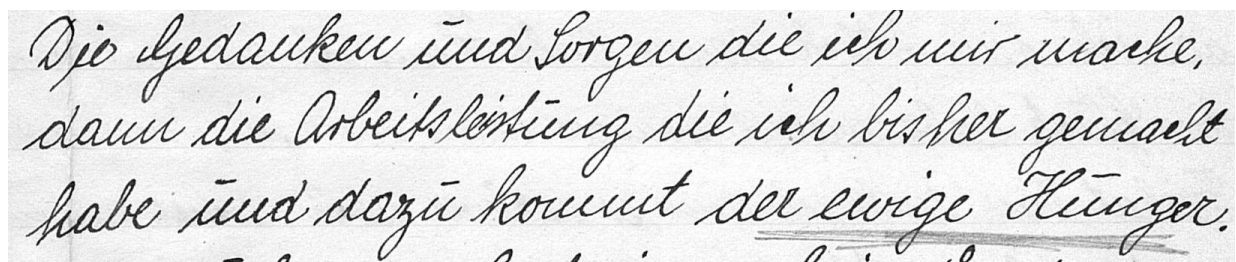 Die Gedanken und Sorgen die ich mir mache,
dann die Arbeitsleistung die ich bisher gemacht
habe und dazu kommt der ewige Hunger.